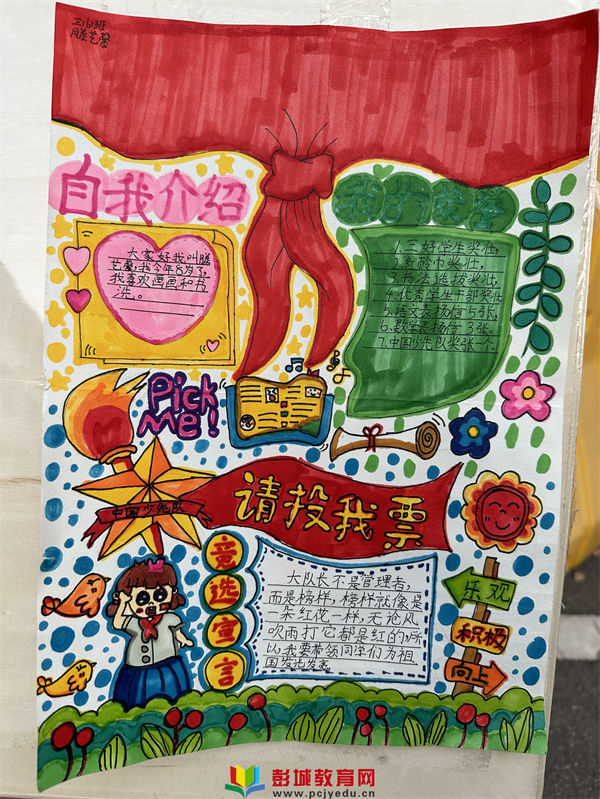 三(6)班
滕艺馨
自我介绍
我的荣誉
大家好我叫滕
艺馨,我今年8岁了,
我喜欢画画和书
法。
1.三好学生奖状,
2.红脸巾奖状,
3.书法结板奖状,
4.优秀学生干部奖状
5.语文表扬信5张,
6.数学表扬信3张。
7.中国少先队奖张一个。
Pick
me!
中国少先队
请投我票
竞选宣言
大队长不是管理者,
而是榜样,榜样就像是
一朵红花一样,无论风
吹雨打它都是红的,所
以我要带领同学们为祖
国发光发亮
乐观
积极
向上
彭城教育网
www.pcjyedu.cn